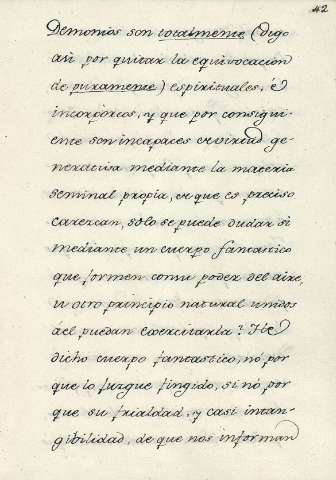 42
Demonios son totalmente (digo
asi por quitar la equivocacion
de puramente) espirituales, é
incorporeos, y que por consigui-
ente son incapaces virtud ge-
nerativa mediante la materia
seminal propia, que es preciso
carezcan, solo se puede dudar si
mediante un cuerpo fantastico
que formen con su poder del aire,
ú otro principio natural unidos
áel puedan exercitarla? He
dicho cuerpo fantastico, nó por
que lo jusgue fingido, si nó por
que su frialdad, y casi intan-
gibilidad, de que nos informan